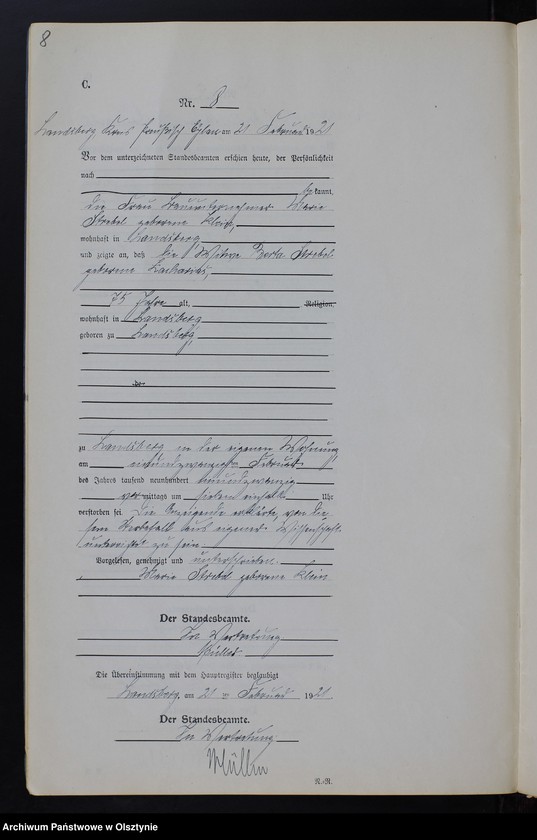 8
C.
Nr. 8
Landsberg Kreis Preußisch Eylau am 21 Februar 1921
Vor dem unterzeichneten Standesbeamten erschien heute, der Persönlichkeit
nach
bekannt,
die Frau Bauunternehmer Marie
Strebel geborene Klein,
wohnhaft in Landsberg
und zeigte an, daß die Witwe Berta Strebel
geborene Zacharias,
75 Jahre alt, Religion,
wohnhaft in Landsberg
geboren zu Landsberg,
de
zu Landsberg in der eigenen Wohnung
am einundzwanzigsten Februar
des Jahres tausend neunhundert einundzwanzig
vormittags um sieben einhalb Uhr
verstorben sei. Die Anzeigende erklärte, von die-
sem Sterbefall aus eigener Wissenschaft
unterrichtet zu sein
Vorgelesen, genehmigt und unterschrieben.
Marie Strebel geborene Klein
Der Standesbeamte.
In Vertretung
Müller.
Die Übereinstimmung mit dem Hauptregister beglaubigt
Landsberg, am 21 Februar 1921
Der Standesbeamte.
In Vertretung
Müller
R.-R.
Archiwum Państwowe w Olsztynie